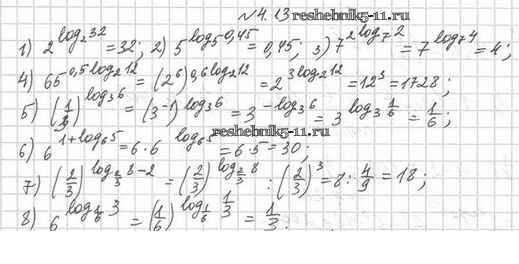 №4.13 reshebnik5-11.ru
1) 2^{log_2 32} = 32; 2) 5^{log_5 0,45} = 0,45; 3) 7^{2 log_7 2} = 7^{log_7 4} = 4;
4) 65^{0,5 log_2 12} = (2^6)^{0,6 log_2 12} = 2^{3 log_2 12} = 12^3 = 1728;
5) (1/3)^{log_3 6} = (3^{-1})^{log_3 6} = 3^{-log_3 6} = 3^{log_3 1/6} = 1/6;
reshebnik5-11.ru
6) 6^{1+log_6 5} = 6·6^{log_6 5} = 6·5 = 30;
7) (2/3)^{log_{2/3} 8-2} = (2/3)^{log_{2/3} 8} : (2/3)^3 = 8 : 4/9 = 18;
8) 6^{log_{1/6} 3} = (1/6)^{log_{1/6} 1/3} = 1/3.